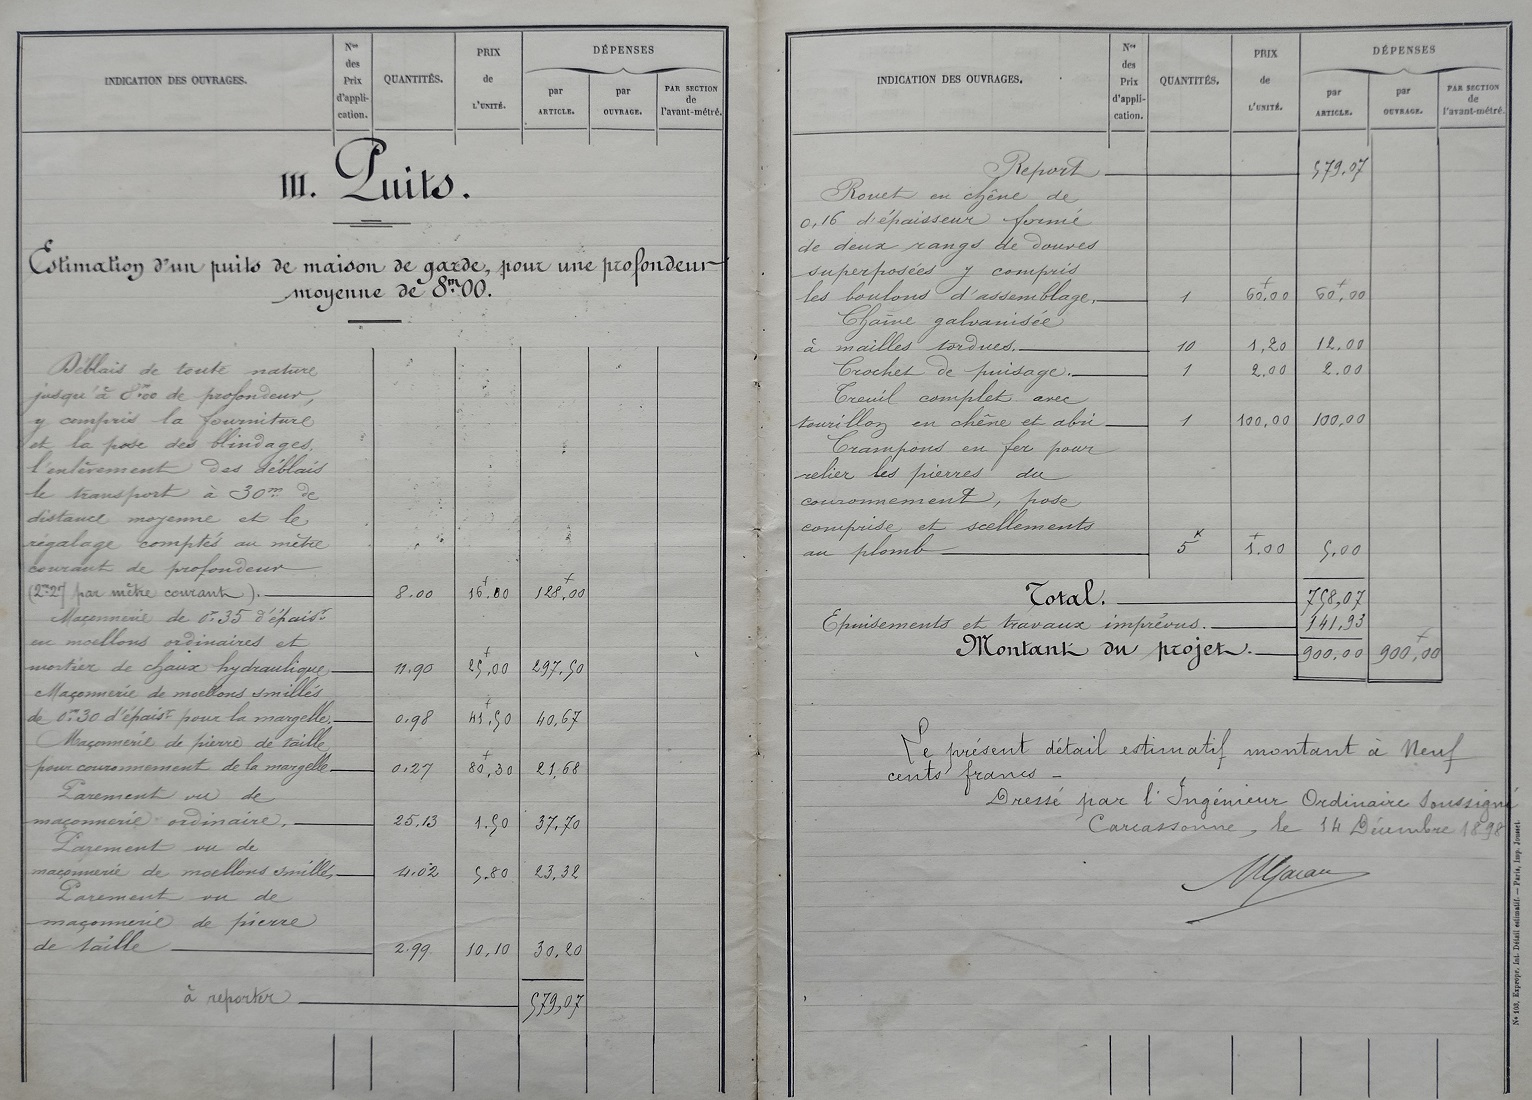 INDICATION DES OUVRAGES.
Nos des Prix d'appli-cation.
QUANTITÉS.
PRIX de L'UNITÉ.
DÉPENSES
par ARTICLE.
par OUVRAGE.
PAR SECTION de l'avant-métré.
III. Puits.
Estimation d'un puits de maison de garde, pour une profondeur
moyenne de 8m00.
Déblais de toute nature
jusqu'à 8m00 de profondeur,
y compris la fourniture
et la pose des blindages,
l'enlèvement des déblais
le transport à 30m de
distance moyenne et le
régalage comptés au mètre
courant de profondeur
(2m27 par mètre courant). 8.00 16.00 128,00
Maçonnerie de 0m35 d'épaisr
en moellons ordinaires et
mortier de chaux hydraulique 11.90 25,00 297,50
Maçonnerie de moellons smillés
de 0m30 d'épaisr pour la margelle. 0.98 41,50 40,67
Maçonnerie de pierre de taille
pour couronnement de la margelle 0.27 80,30 21,68
Parement vu de
maçonnerie ordinaire. 25.13 1.50 37.70
Parement vu de
maçonnerie de moellons smillés 4.02 5.80 23,32
Parement vu de
maçonnerie de pierre
de taille 2.99 10,10 30,20
à reporter 579,07
INDICATION DES OUVRAGES.
Nos des Prix d'appli-cation.
QUANTITÉS.
PRIX de L'UNITÉ.
DÉPENSES
par ARTICLE.
par OUVRAGE.
PAR SECTION de l'avant-métré.
Report 579.07
Rouet en chêne de
0,16 d'épaisseur formé
de deux rangs de douves
superposées y compris
les boulons d'assemblage. 1 60,00 60,00
Chaîne galvanisée
à mailles tordues. 10 1,20 12.00
Crochet de puisage. 1 2.00 2.00
Treuil complet avec
tourillon en chêne et abri 1 100,00 100,00
Crampons en fer pour
relier les pierres du
couronnement, pose
comprise et scellements
au plomb 5k 1.00 5.00
Total. 758,07
Epuisements et travaux imprévus. 141,93
Montant du projet. 900.00 900,00
Le présent détail estimatif montant à Neuf
cents francs
Dressé par l'Ingénieur Ordinaire soussigné
Carcassonne, le 14 Décembre 1898
No 103, Expropr. Int. Détail estimatif. — Paris, Imp. Jousset.